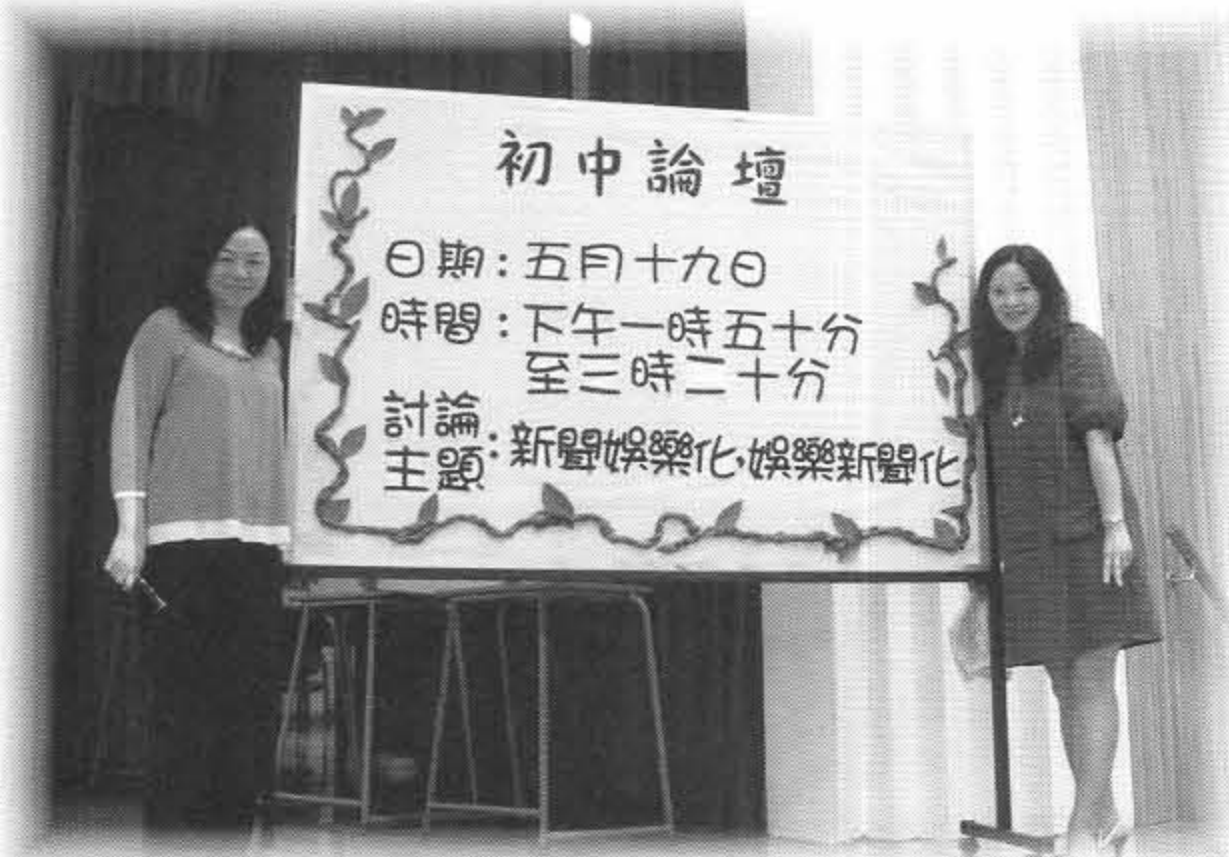 初中論壇
日期：五月十九日
時間：下午一時五十分
至三時二十分
討論主題：新聞娛樂化，娛樂新聞化